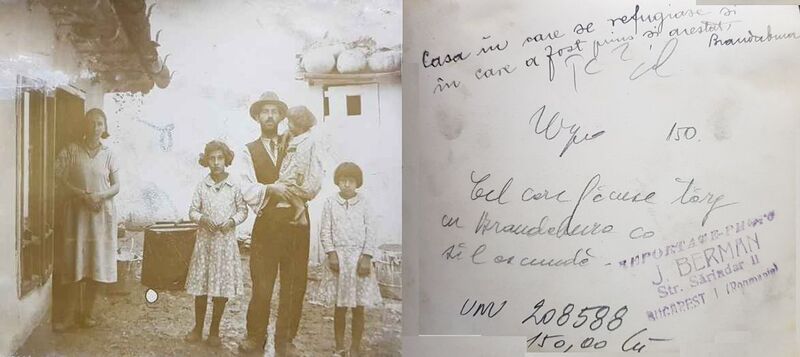 Casa in care se refugiase si
in care a fost prins si arestat
Brandabura
150.
Cel care făcuse târg
cu Brandabura ca
să-l ascundă -
REPORTAJE-PHOTO
J. BERMAN
Str. Sărindar 11
BUCAREST I (Roumanie)
208588
150,00 lei